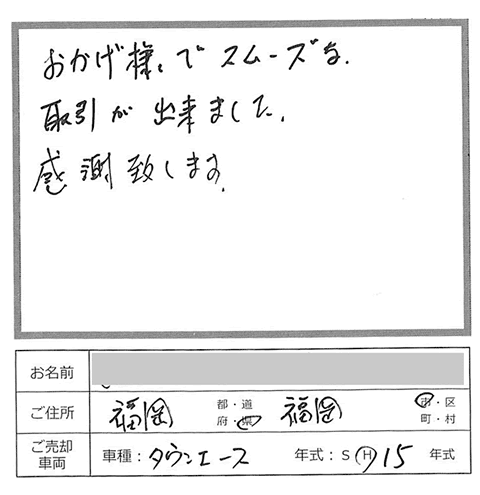 おかげ様でスムーズな
取引が出来ました。
感謝致します。
お名前
ご住所 福岡 都・道 府・県 福岡 市・区 町・村
ご売却車両 車種：タウンエース 年式：S H 15 年式